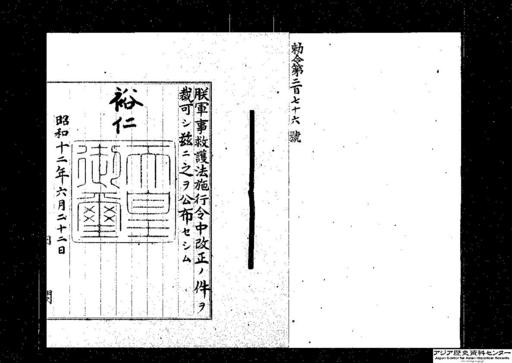 勅令第二百七十六號
朕軍事救護法施行令中改正ノ件ヲ
裁可シ茲ニ之ヲ公布セシム
裕仁
天皇
御璽
昭和十二年六月二十二日
アジア歴史資料センター
Japan Center for Asian Historical Records